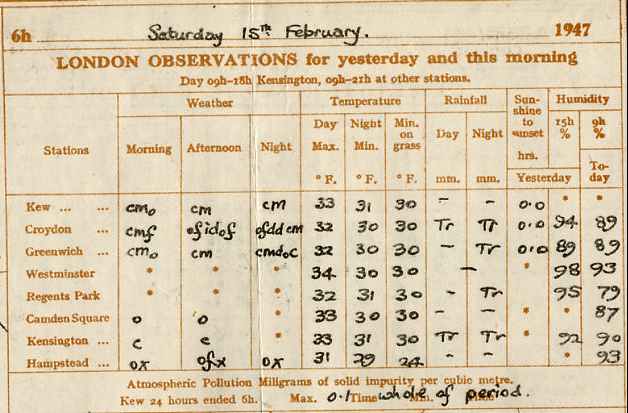 6h Saturday 15th February. 1947
LONDON OBSERVATIONS for yesterday and this morning
Day 09h-18h Kensington, 09h-21h at other stations.
Weather Temperature Rainfall Sun-shine to sunset Humidity
Stations Morning Afternoon Night Day Max. Night Min. Min. on grass Day Night hrs. 15h % 9h %
° F. ° F. ° F. mm. mm. Yesterday To-day
Kew ... ... cm₀ cm cm 33 31 30 - - 0.0 * *
Croydon ... cmf ofidof ofddcm 32 30 30 Tr Tr 0.0 94 89
Greenwich ... cm₀ cm cmd₀c 32 30 30 - Tr 0.0 89 89
Westminster * * * 34 30 30 - * 98 93
Regents Park * * * 32 31 30 - Tr 95 79
Camden Square o o 33 30 30 - - * * 87
Kensington ... c c 33 31 30 Tr Tr * 92 90
Hampstead ... ox ofx ox 31 29 24 - - * 93
Atmospheric Pollution Miligrams of solid impurity per cubic metre.
Kew 24 hours ended 6h. Max. 0.1 Time whole of period. Min.